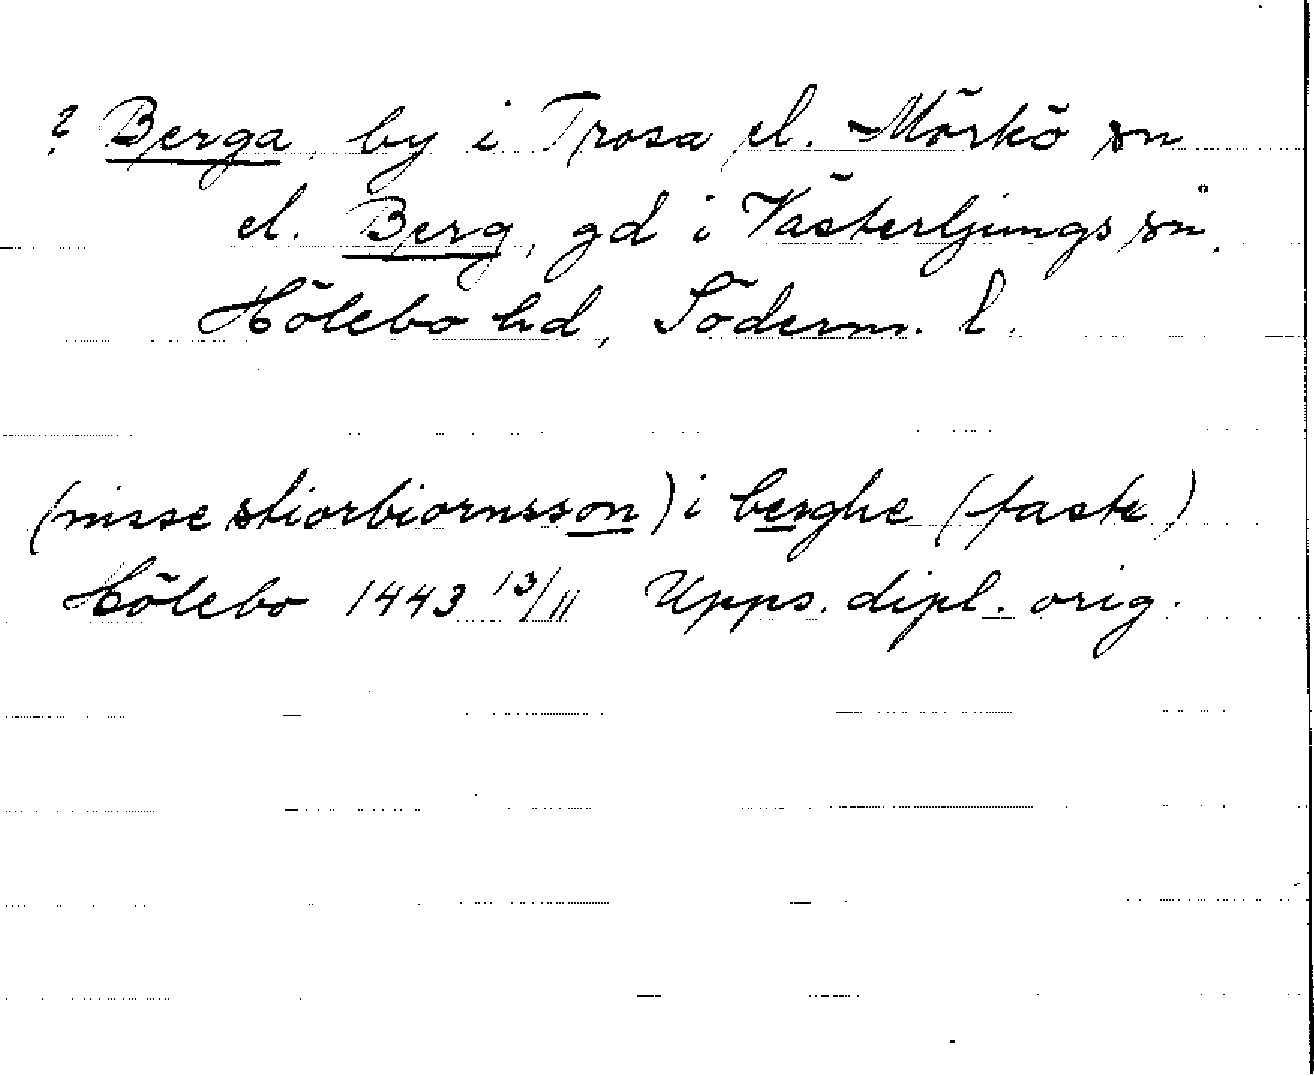 ? Berga, by i Trosa el. Mörkö sn
el. Berg, gd i Västerljungs sn,
Hölebo hd, Söderm. l.
(nisse stiorbiornsson) i berghe (faste)
Hölebo 1443 13/11 Upps. dipl. orig.